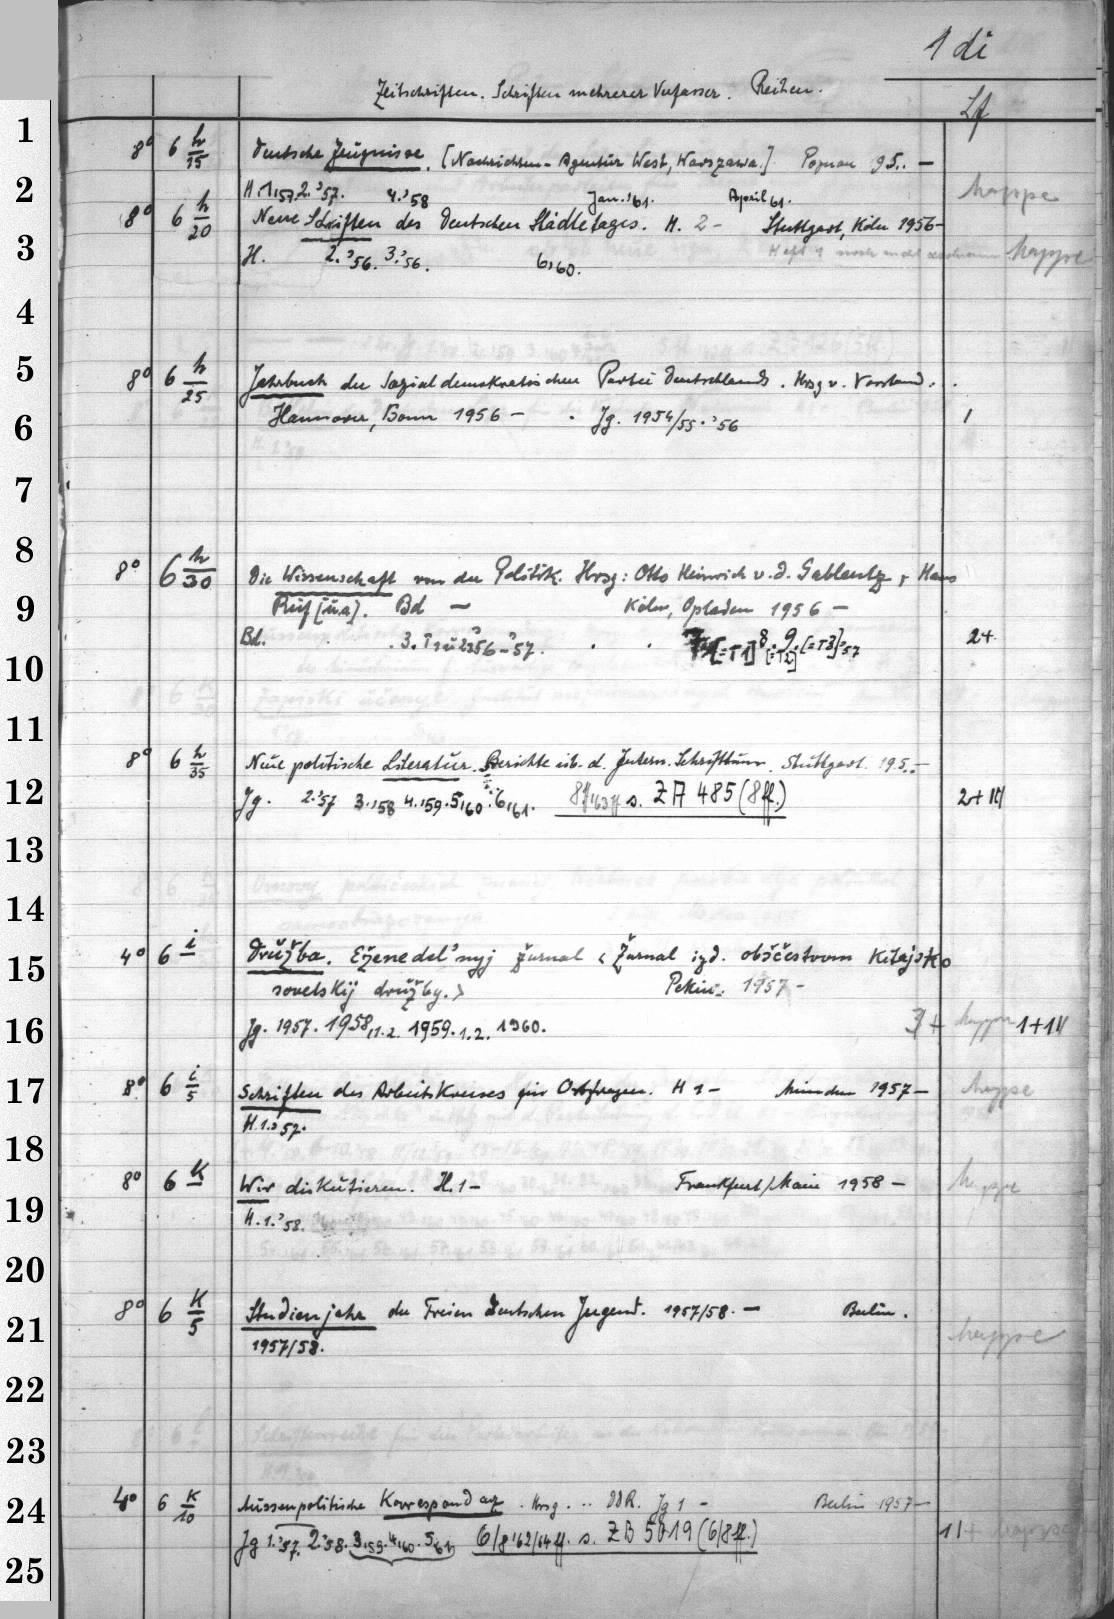 1 di
Zeitschriften. Schriften mehrerer Verfasser. Reihen.
Lf
1
8° 6 h/15 Deutsche Zeugnisse. [Nachrichten-Agentur West, Warszawa.] Poznan 95.. —
2
H. 1,57. 2.'57. 4.'58 Jan.'61. April 61. Mappe
8° 6 h/20 Neue Schriften des Deutschen Städtetages. H. 2 - Stuttgart, Köln 1956-
3
H. 2.'56. 3.'56. 6,60. Heft 1 noch nicht erschienen Mappe
4
5
8° 6 h/25 Jahrbuch der Sozialdemokratischen Partei Deutschlands. Hrsg v. Vorstand.
6
Hannover, Bonn 1956 — Jg. 1954/55.'56 1
7
8
8° 6 h/30 Die Wissenschaft von der Politik. Hrsg: Otto Heinrich v. d. Gablentz, Hans
9
[u.a]. Bd — Köln, Opladen 1956 —
Bd. 7 [=T1] 8. [=T2] 9. [=T3]'57 2+
10
11
8° 6 h/35 Neue politische Literatur. Berichte üb. d. Intern. Schrifttum. Stuttgart. 195.. —
12
Jg. 2.'57 3.,58 4.,59. 5,60. 6,61. 8ff. s. ZA 485 (8ff.)
13
14
15
4° 6 i Družba. Eženedel'nyj žurnal <Žurnal izd. obščestvom Kitajsko
sovetskij družby.> Pekin: 1957 -
16
Jg. 1957. 1958,1.2. 1959.1.2. 1960. Mappe
17
8° 6 i/5 Schriften des Arbeitskreises für Ostfragen. H 1 — München 1957 — Mappe
H.1.'57.
18
8° 6 K Wir diskutieren. H.1 — Frankfurt/Main 1958 — Mappe
19
H.1.'58.
20
8° 6 K/5 Studienjahr der Freien Deutschen Jugend. 1957/58. — Berlin.
21
1957/58. Mappe
22
23
24
4° 6 K/10 Aussenpolitische Korrespondenz. Hrsg. .. DDR. Jg 1 - Berlin 1957 —
Jg 1.'57. 2.'58. 3,59. 4,60. 5,61. 6/8'62/64ff. s. ZB 5819 (6/8ff.) Mappe
25